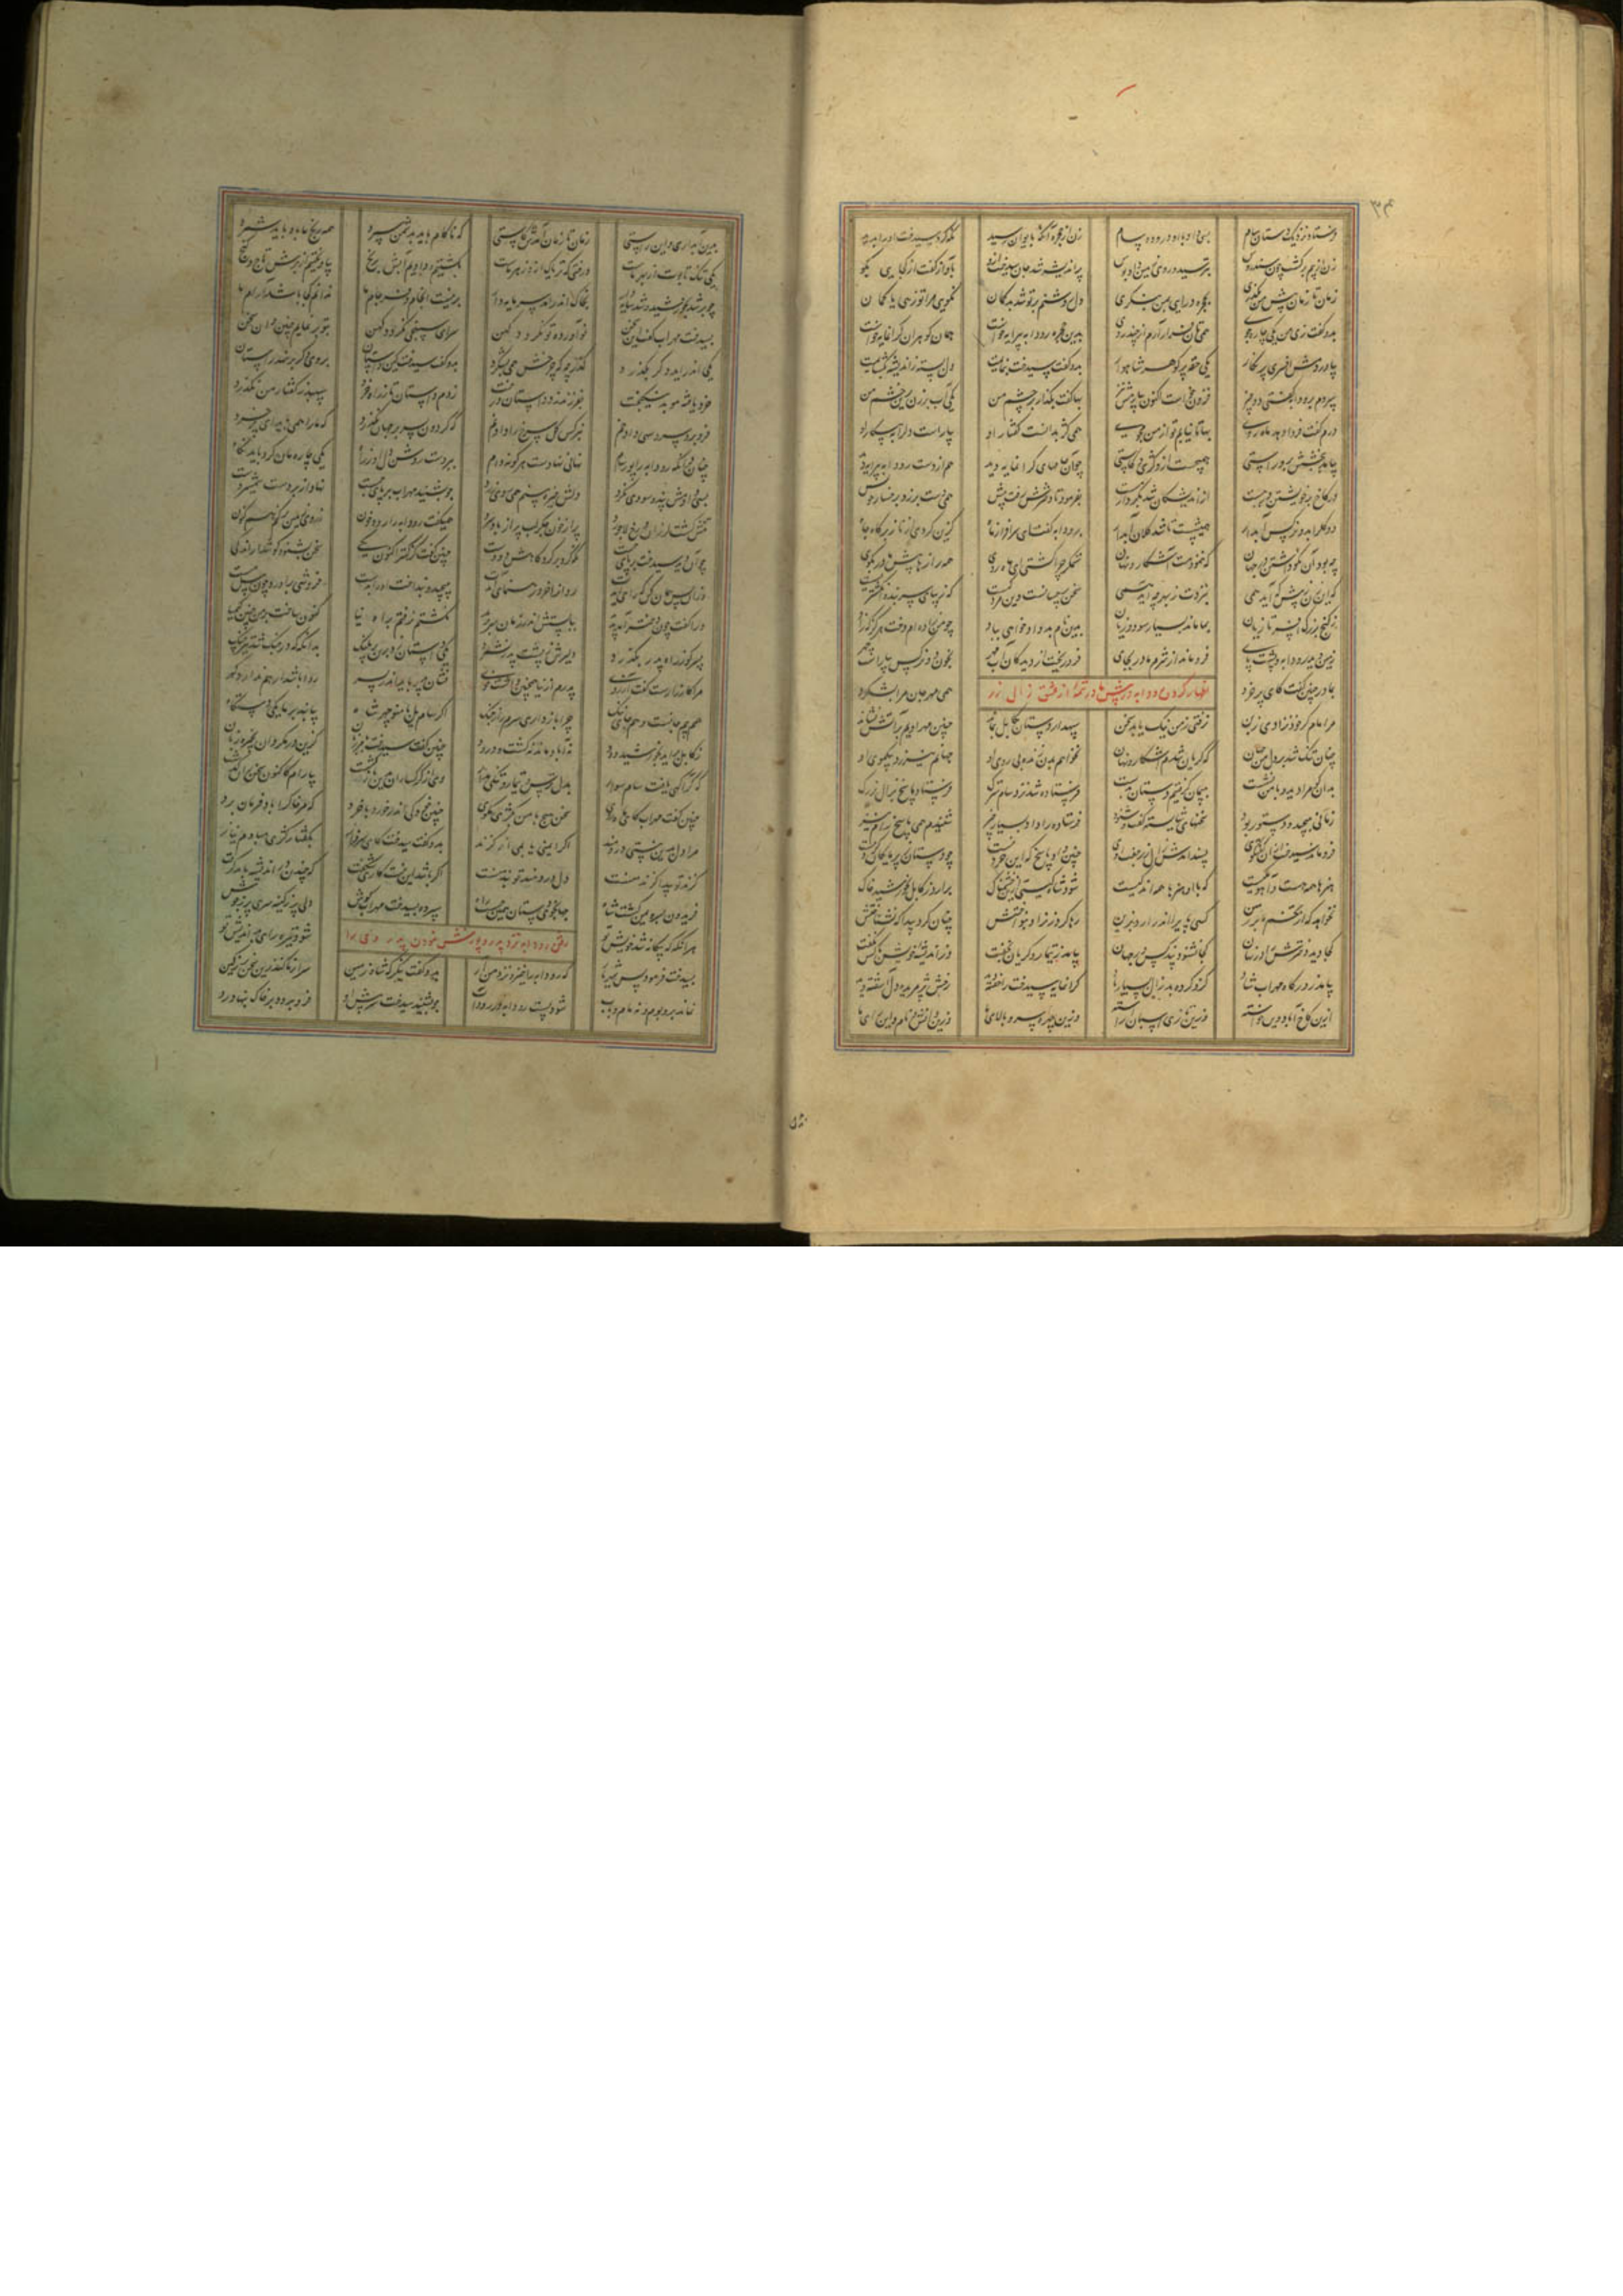 فرستاد نزدیک دستان سام بسی داد با او درود و پیام زن از حجره آنگه بایوان رسید نگه کرد سیندخت او را بدید
زن از بیم برگشت چون سندروس بترسید و روی زمین داد بوس پر اندیشه شد جان سیندخت ازو بآواز گفت از کجایی بگو
زمان تا زمان پیش من بگذری بحجره درآیی بمن ننگری دل روشنم بر تو شد بدگمان نگویی مرا تو زهی یا کمان
بدو گفت زن من یکی چاره جوی همی نان فراز آرم از چند روی بدین حجره رودابه پیرایه خواست همان گوهران گرانمایه خواست
بیاوردمش افسری پرنگار یکی حقه پر گوهر شاهوار بدو گفت سیندخت بنماییم دل بسته ز اندیشه بگشاییم
سپردم برودابه گفت این دو چیز فزون خواست اکنون بیارمش نیز بها گفت بگذار بر چشم من یکی آب برزن برین خشم من
درم گفت فردا دهد ماه روی بها تا نیابم تو از من مجوی همی کژ بدانست گفتار او بیاراست دل را به پیکار او
بیامد بجستش بر و راستی همی جست ازو کژی و کاستی چو آن جامهای گرانمایه دید هم از دست رودابه پیرایه دید
در کاخ بر خویشتن بر ببست از اندیشگان شد بکردار مست بفرمود تا دخترش رفت پیش همی دست برزد برخسار خویش
دو گل را بدو نرگس آبدار همی شست تا شد گلان آبدار برودابه گفت ای سرافراز ماه گزین کردی از ناز برگاه چاه
چه بود آن که داشتم در جهان که ننمودمت آشکار و نهان ستمگر چرا گشتی ای ماه روی همه رازها پیش مادر بگوی
که این زن ز پیش که آید همی بنزدت ز بهر چه آید همی سخن بر چه سانست و این مرد کیست که زیبای سربند و انگشتریست
ز گنج بزرگ افسر تازیان بما ماند بسیار سود و زیان بدین نام بد داد خواهی بباد چو من زاده ام دخت هرگز مباد
زمین دید رودابه و پشت پای فرو ماند از شرم مادر بجای فرو ریخت از دیدگان آب مهر بخون دو نرگس بیاراست چهر
بمادر چنین گفت کای پر خرد همی مهر جان مرا بشکرد
اظهار کردن رودابه در پیش مادر از عشق زال زر
مرا مام فرخ نزادی ز بن نرفتی ز من نیک یا بد سخن سپهدار دستان بکابل بماند چنین مهر اویم بر آتش نشاند
چنان تنگ شد بر دل من جهان که گریان شدم آشکار و نهان نخواهم بدن زنده بی روی او جهانم نیرزد بیک موی او
بدان کو مرا دید و با من نشست بپیمان گرفتیم دستش بدست فرستاده شد نزد سام سترگ فرستاد پاسخ بزال بزرگ
زمانی بپیچید و دستور بود سخنهای بایسته گفت و شنود فرستاده را داد بسیار چیز شنیدم همی پاسخ سام نیز
فرو ماند سیندخت زان گفتگوی پسند آمدش زال را جفت اوی چنین داد پاسخ که این خرد نیست چو دستان ز پرمایگان گرد نیست
هنرها همه هست و آهو یکیست که با او هنرها همه اندکیست شود شاه گیتی ازین خشمناک برآرد ز کابل بخورشید خاک
نخواهد که از تخم ما بر زمین کسی پای را اندر آرد بزین رها کرد زن را و بنواختش چنان کرد پیدا که نشناختش
کجا نشنود پند کس در جهان بیامد ز تیمار گریان بخفت
بیامد ز درگاه مهراب شاد کزو کرده بد زال بسیار یاد گرانمایه سیندخت را خفته دید رخش پژمریده دل آشفته دید
ازین کاخ آباد و این خواسته وزین تازی اسپان آراسته وزین چهره و سرو بالای ما وزین دانش و نام و این رای ما
بدین آبداری و این راستی زمان تا زمان آیدش کاستی که ناکام باید بدشمن سپرد همه رنج ما باد باید شمرد
یکی تنگ تابوت ازین بهر ماست درختی که تریاک او زهر ماست بکشتیم و دادیم آبش برنج بیاویختیم از برش تاج و گنج
چو بر شد بخورشید و شد سایه دار بخاک اندر آمد سر مایه دار برینست انجام و فرجام ما ندانم کجا باشد آرام ما
بسیندخت مهراب گفت این سخن نو آورده و نو نگردد کهن سرای سپنجی
یکی اندر آید دگر بگذرد گذر که چرخش همی بشکرد بدو گفت سیندخت کین داستان بروی دگر بر نهد راستان
خرد یافته موبد نیکبخت بفرزند زد داستان درخت زدم داستان تا ز راه خرد سپهبد ز گفتار من نگذرد
فرو برد سرو سهی داد خم بنرگس گل سرخ را داد نم که گردون بسر بر جهان نگذرد که ما را همی باید ای پرخرد
چنان دان که رودابه را پور سام نهانی نهادست هر گونه دام ببردست روشن دلش را ز راه یکی چاره مان کرد باید نگاه
بسی دادمش پند و سودی نکرد دلش خیره بینم همی روی زرد چو بشنید مهراب بر پای جست نهاد از بر دست شمشیر دست
تنش گشت لرزان و رخ لاجورد پر از خون جگر لب پر از باد سرد همی گفت رودابه را رود خون بروی زمین بر کنم هم کنون
چو آن دید سیندخت بر پای جست کمر کرد بر گردگاهش دو دست چنین گفت کز کهتر اکنون یکی سخن بشنو و گوش دار اندکی
وزان پس همان کن که رای آیدت روان را خرد رهنمای آیدت بپیچید و بنداخت او را بدست خروشی برآورد چون پیل مست
ورا گفت چون دختر آمد پدید ببایستش اندر زمان سر برید نکشتم نرفتم براه نیا کنون ساخت بر من چنین کیمیا
پسر کو ز راه پدر بگذرد دلیرش ز پشت پدر نشمرد یکی داستان زد برین بر پلنگ بدانگه که در جنگ شد تیز چنگ
مرا کارزارست گفت آرزوی پدرم از نیا همچنین داشت خوی نشان پدر باید اندر پسر روا باشد ار هم ندارد هنر
هم بیم جانست و هم جای ننگ چرا باز داری سرم را ز جنگ اگر سام یل با منوچهر شاه بیابند بر ما یکی دستگاه
ز کابل برآید بخورشید دود نه آباد ماند نه کشت و درود چنین گفت سیندخت با مرزبان کزین در مگردان بخیره زبان
کزین آگهی یافت سام سوار بدل ترس و تیمار چندین مدار وی از گرگساران بدین بازگشت بیارام کاکنون سخن برگذشت
چنین گفت مهراب کای ماه روی سخن هیچ با من بکژی مگوی چنین خود کی اندر خورد با خرد که مر خاک را باد فرمان برد
مرا دل بدین نیستی دردمند اگر ایمنی یابمی از گزند بدو گفت سیندخت کای سرفراز بگفتار کژی مبادم نیاز
گزند تو پیدا گزند منست دل دردمند تو بند منست اگر باشد این نیست کاری شگفت که چندین بد اندیشه باید گرفت
فریدون بسرو یمن گشت شاه جهانجوی دستان همین دید راه سپرده بسیندخت مهراب گوش دلی پر ز کینه سری پر ز جوش
هر آنگه که بیگانه شد خویش تو شود تیره رای بداندیش تو
رفتن رودابه نزد پدر و پدر
بسیندخت فرمود پس شهریار که رودابه را خیز نزد من آر بدو گفت بنگر که شاه زمین سر از ما کند زین سخن پر ز کین
نماند بر و بوم و نه مام و باب شود پست رودابه چو بشنید سیندخت سر پیش او فرو برد و بر خاک بنهاد رو